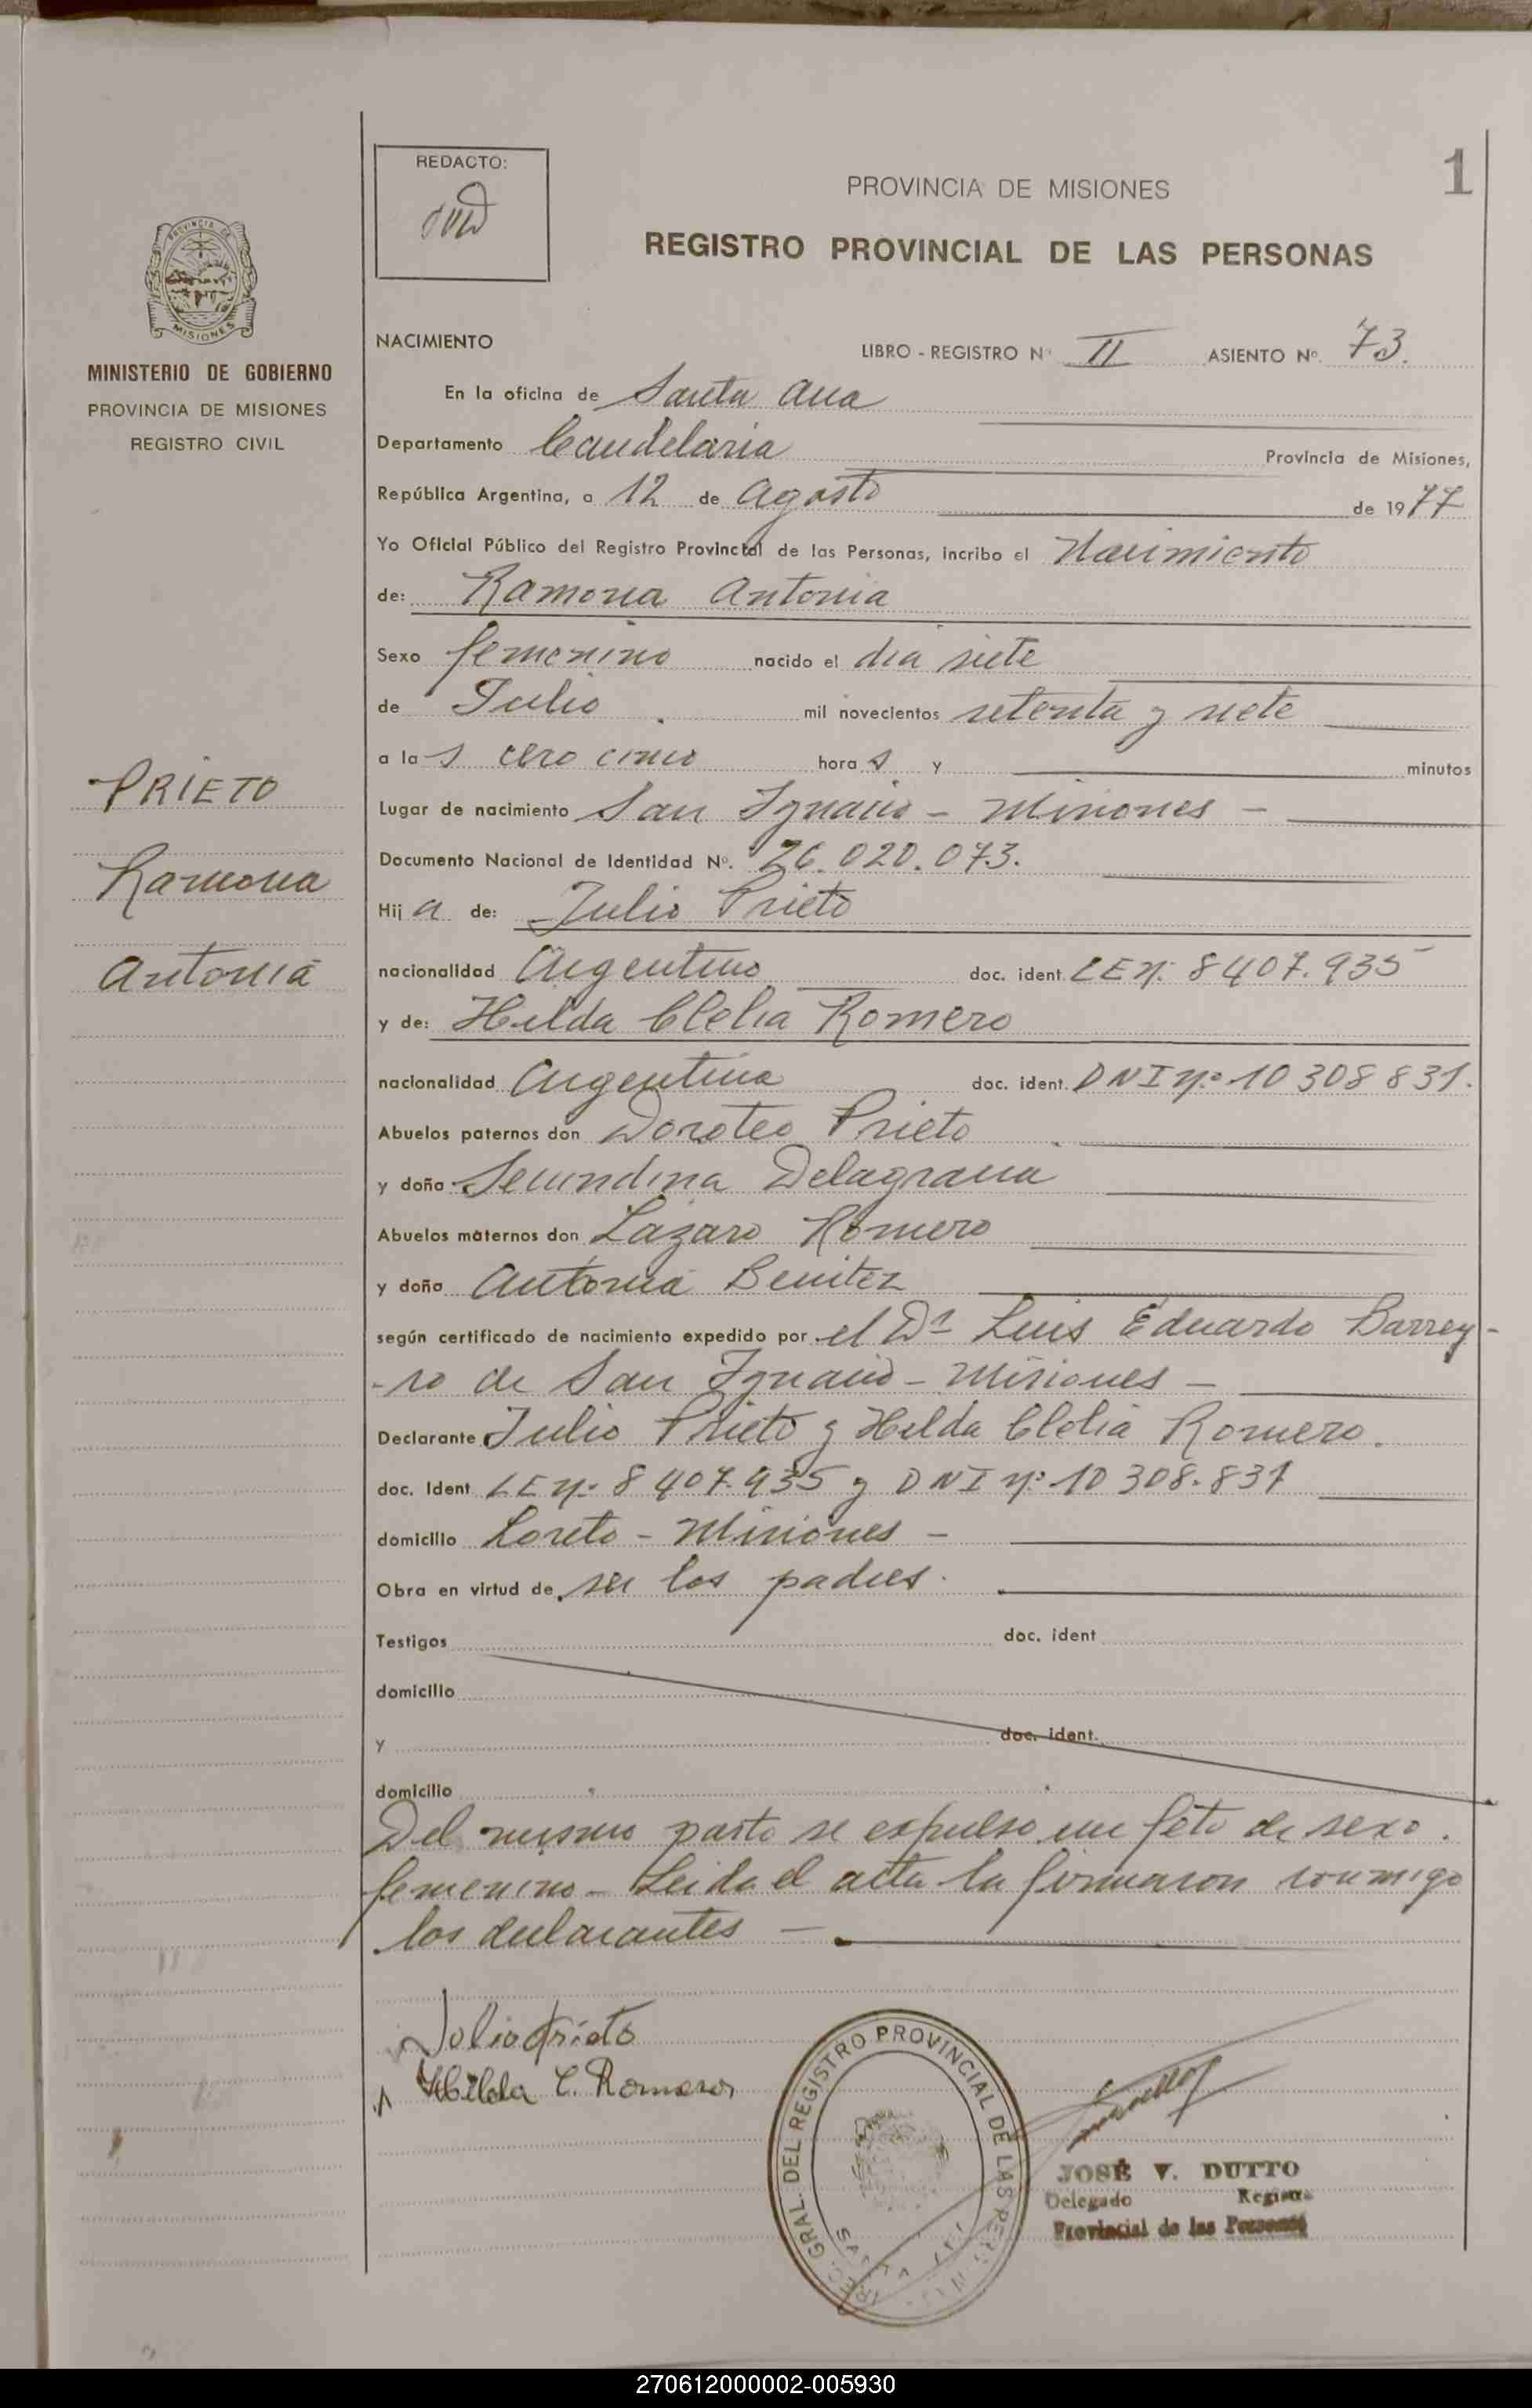 REDACTO:
1
PROVINCIA DE MISIONES
REGISTRO PROVINCIAL DE LAS PERSONAS
PROVINCIA DE
MISIONES
MINISTERIO DE GOBIERNO
PROVINCIA DE MISIONES
REGISTRO CIVIL
NACIMIENTO
LIBRO - REGISTRO Nº II ASIENTO Nº. 73.
En la oficina de Santa Ana
Departamento Candelaria Provincia de Misiones,
República Argentina, a 12 de Agosto de 1977
Yo Oficial Público del Registro Provincial de las Personas, incribo el Nacimiento
de: Ramona Antonia
Sexo femenino nacido el dia siete
de Julio mil novecientos setenta y siete
a las cero cinco horas y minutos
PRIETO
Ramona
Antonia
Lugar de nacimiento San Ignacio - Misiones -
Documento Nacional de Identidad Nº. 26.020.073.
Hija de: Julio Prieto
nacionalidad Argentino doc. ident. LE Nº 8407.935
y de: Hilda Clelia Romero
nacionalidad Argentina doc. ident. DNI Nº 10 308 831.
Abuelos paternos don Doroteo Prieto
y doña Secundina Delagrana
Abuelos maternos don Lázaro Romero
y doña Antonia Benitez
según certificado de nacimiento expedido por el Dr Luis Eduardo Barrey-
-ro de San Ignacio - Misiones -
Declarante Julio Prieto y Hilda Clelia Romero.
doc. Ident LE Nº 8 407.935 y DNI Nº 10 308.831
domicilio Loreto - Misiones -
Obra en virtud de ser los padres.
Testigos doc. ident
domicilio
y doc. ident.
domicilio
Del mismo parto se expulso un feto de sexo.
femenino - Leida el acta la firmaron conmigo
los declarantes -
Julio Prieto
Hilda C. Romero
GRAL. DEL REGISTRO PROVINCIAL DE LAS
JOSÉ V. DUTTO
Delegado Registro
Provincial de las Personas
270612000002-005930